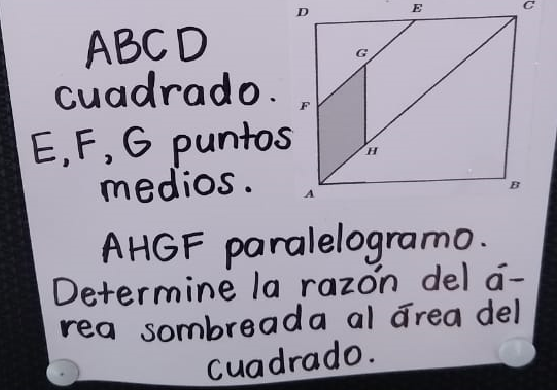 ABCD
cuadrado.
E, F, G puntos
medios.
D
E
C
G
F
H
A
B
AHGF paralelogramo.
Determine la razón del á-
rea sombreada al área del
cuadrado.